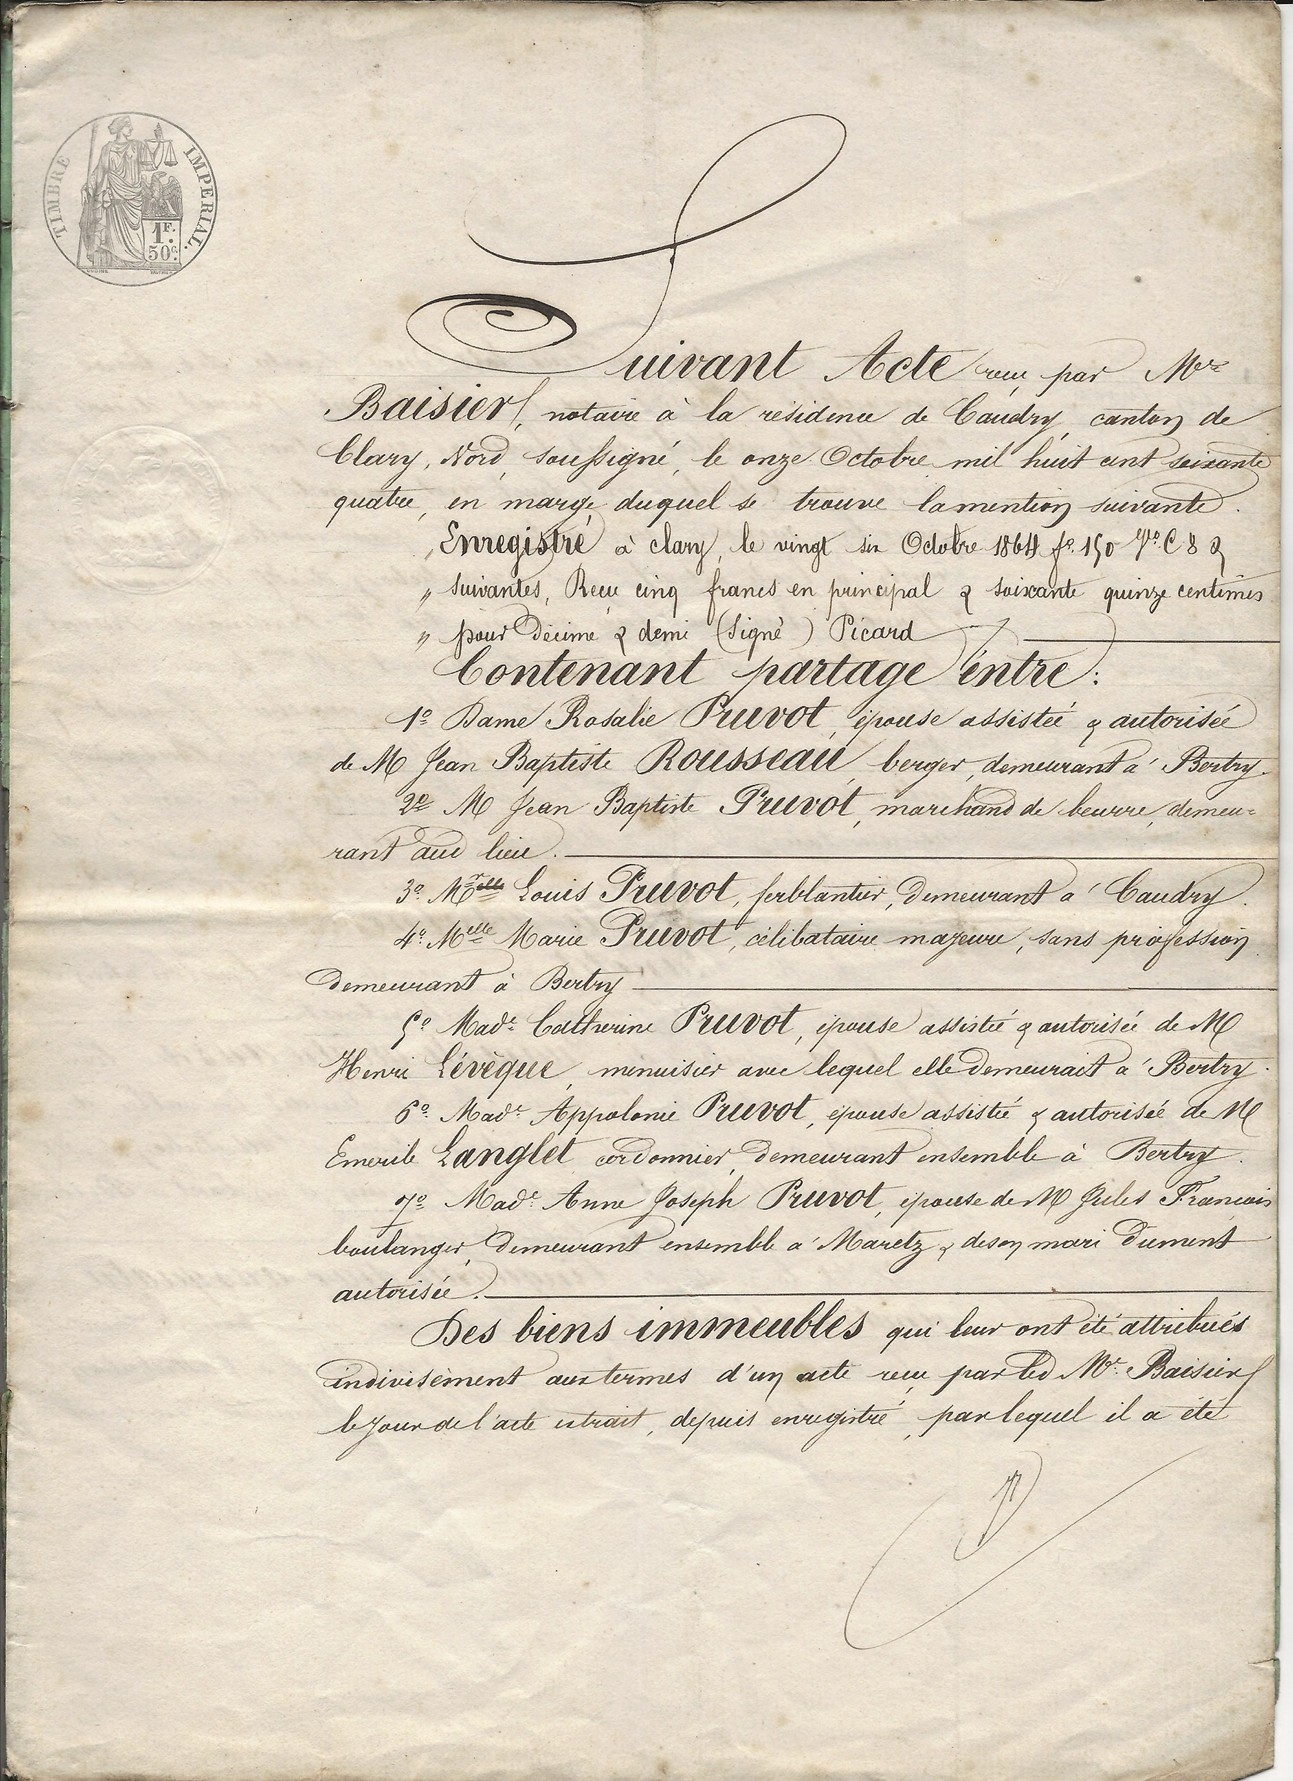 TIMBRE IMPERIAL.
1F.
50c.
Suivant Acte reçu par Me
Baisier, notaire à la résidence de Caudry, canton de
Clary, Nord, soussigné, le onze Octobre mil huit cent soixante
quatre, en marge duquel se trouve la mention suivante.
„ Enregistré à Clary, le vingt six Octobre 1864 fo. 150 Vo. C 8 &
„ suivantes, Reçu cinq francs en principal & soixante quinze centimes
„ pour décime & demi (Signé) Picard
Contenant partage entre:
1o Dame Rosalie Pruvot, épouse assistée & autorisée
de M Jean Baptiste Rousseau, berger, demeurant à Bertry.
2o M Jean Baptiste Pruvot, marchand de beurre, demeu=
rant aud lieu.
3o. Mr Louis Pruvot, ferblantier, demeurant à Caudry.
4o. Melle Marie Pruvot, célibataire majeure, sans profession
demeurant à Bertry
5o Made Catherine Pruvot, épouse assistée & autorisée de M
Henri Lévèque, menuisier avec lequel elle demeurait à Bertry.
6o. Made Appolonie Pruvot, épouse assistée & autorisée de M
Emerile Langlet cordonnier, demeurant ensemble à Bertry.
7o Made Anne Joseph Pruvot, épouse de M Jules François
boulanger, demeurant ensemble à Maretz & de son mari dument
autorisée.
Des biens immeubles qui leur ont été attribués
indivisément aux termes d'un acte reçu par led Me. Baisier
le jour de l'acte extrait, depuis enregistré, par lequel il a été